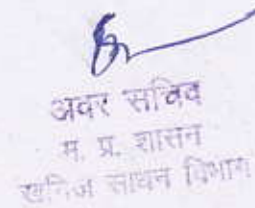 अवर सचिव
म. प्र. शासन
खनिज साधन विभाग